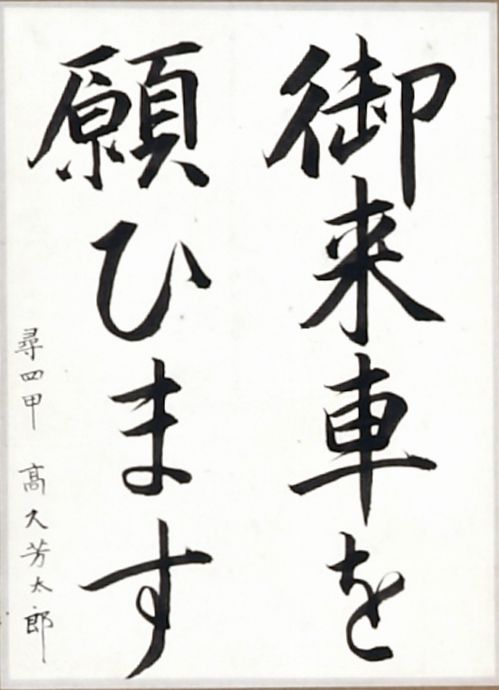 御来車を
願ひます
尋四甲 高久芳太郎